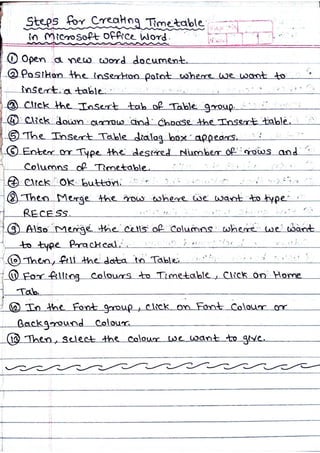 Steps for Creating Timetable
in Microsoft Office Word.
① Open a new word document.
② Position the insertion point where we want to
insert a table.
③ Click the Insert tab of Table group.
④ Click down arrow and choose the Insert table.
⑤ The Insert Table dialog box appears.
⑥ Enter or Type the desired Number of rows and
Columns of Timetable.
⑦ Click OK button.
⑧ Then Merge the row where we want to type
RECESS.
⑨ Also Merge the cells of Columns where we want
to type Practical.
⑩ Then, fill the data in Table.
⑪ For filling colours to Timetable, Click on Home
Tab.
⑫ In the Font group, click on Font Colour or
Background Colour.
⑬ Then, select the colour we want to give.